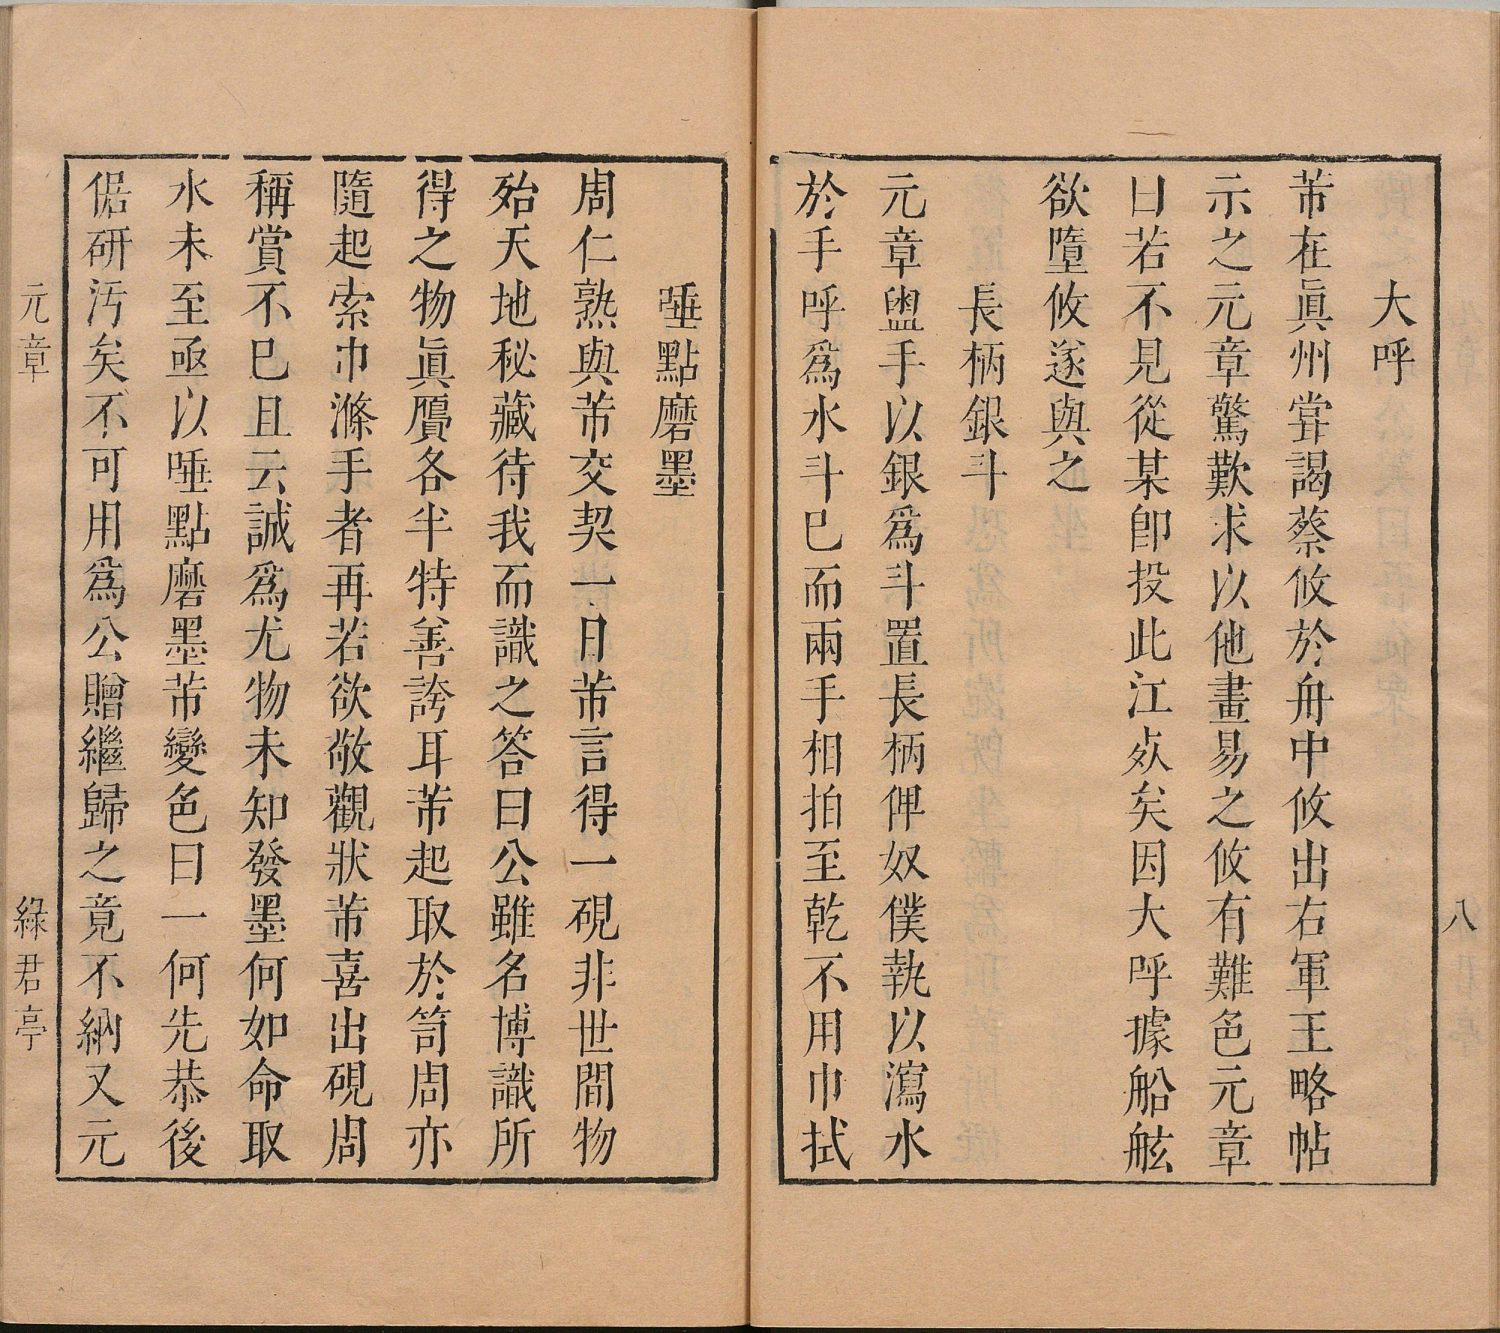 八
大呼
芾在眞州嘗謁蔡攸於舟中攸出右軍王略帖
示之元章驚歎求以他畫易之攸有難色元章
曰若不見從某卽投此江死矣因大呼據船舷
欲墮攸遂與之
長柄銀斗
元章盥手以銀爲斗置長柄俾奴僕執以瀉水
於手呼爲水斗已而兩手相拍至乾不用巾拭
唾點磨墨
周仁熟與芾交契一日芾言得一硯非世間物
殆天地秘藏待我而識之答曰公雖名博識所
得之物眞贋各半特善誇耳芾起取於笥周亦
隨起索巾滌手者再若欲敬觀狀芾喜出硯周
稱賞不已且云誠爲尤物未知發墨何如命取
水未至亟以唾點磨墨芾變色曰一何先恭後
倨研汚矣不可用爲公贈繼歸之竟不納又元
元章
綠君亭